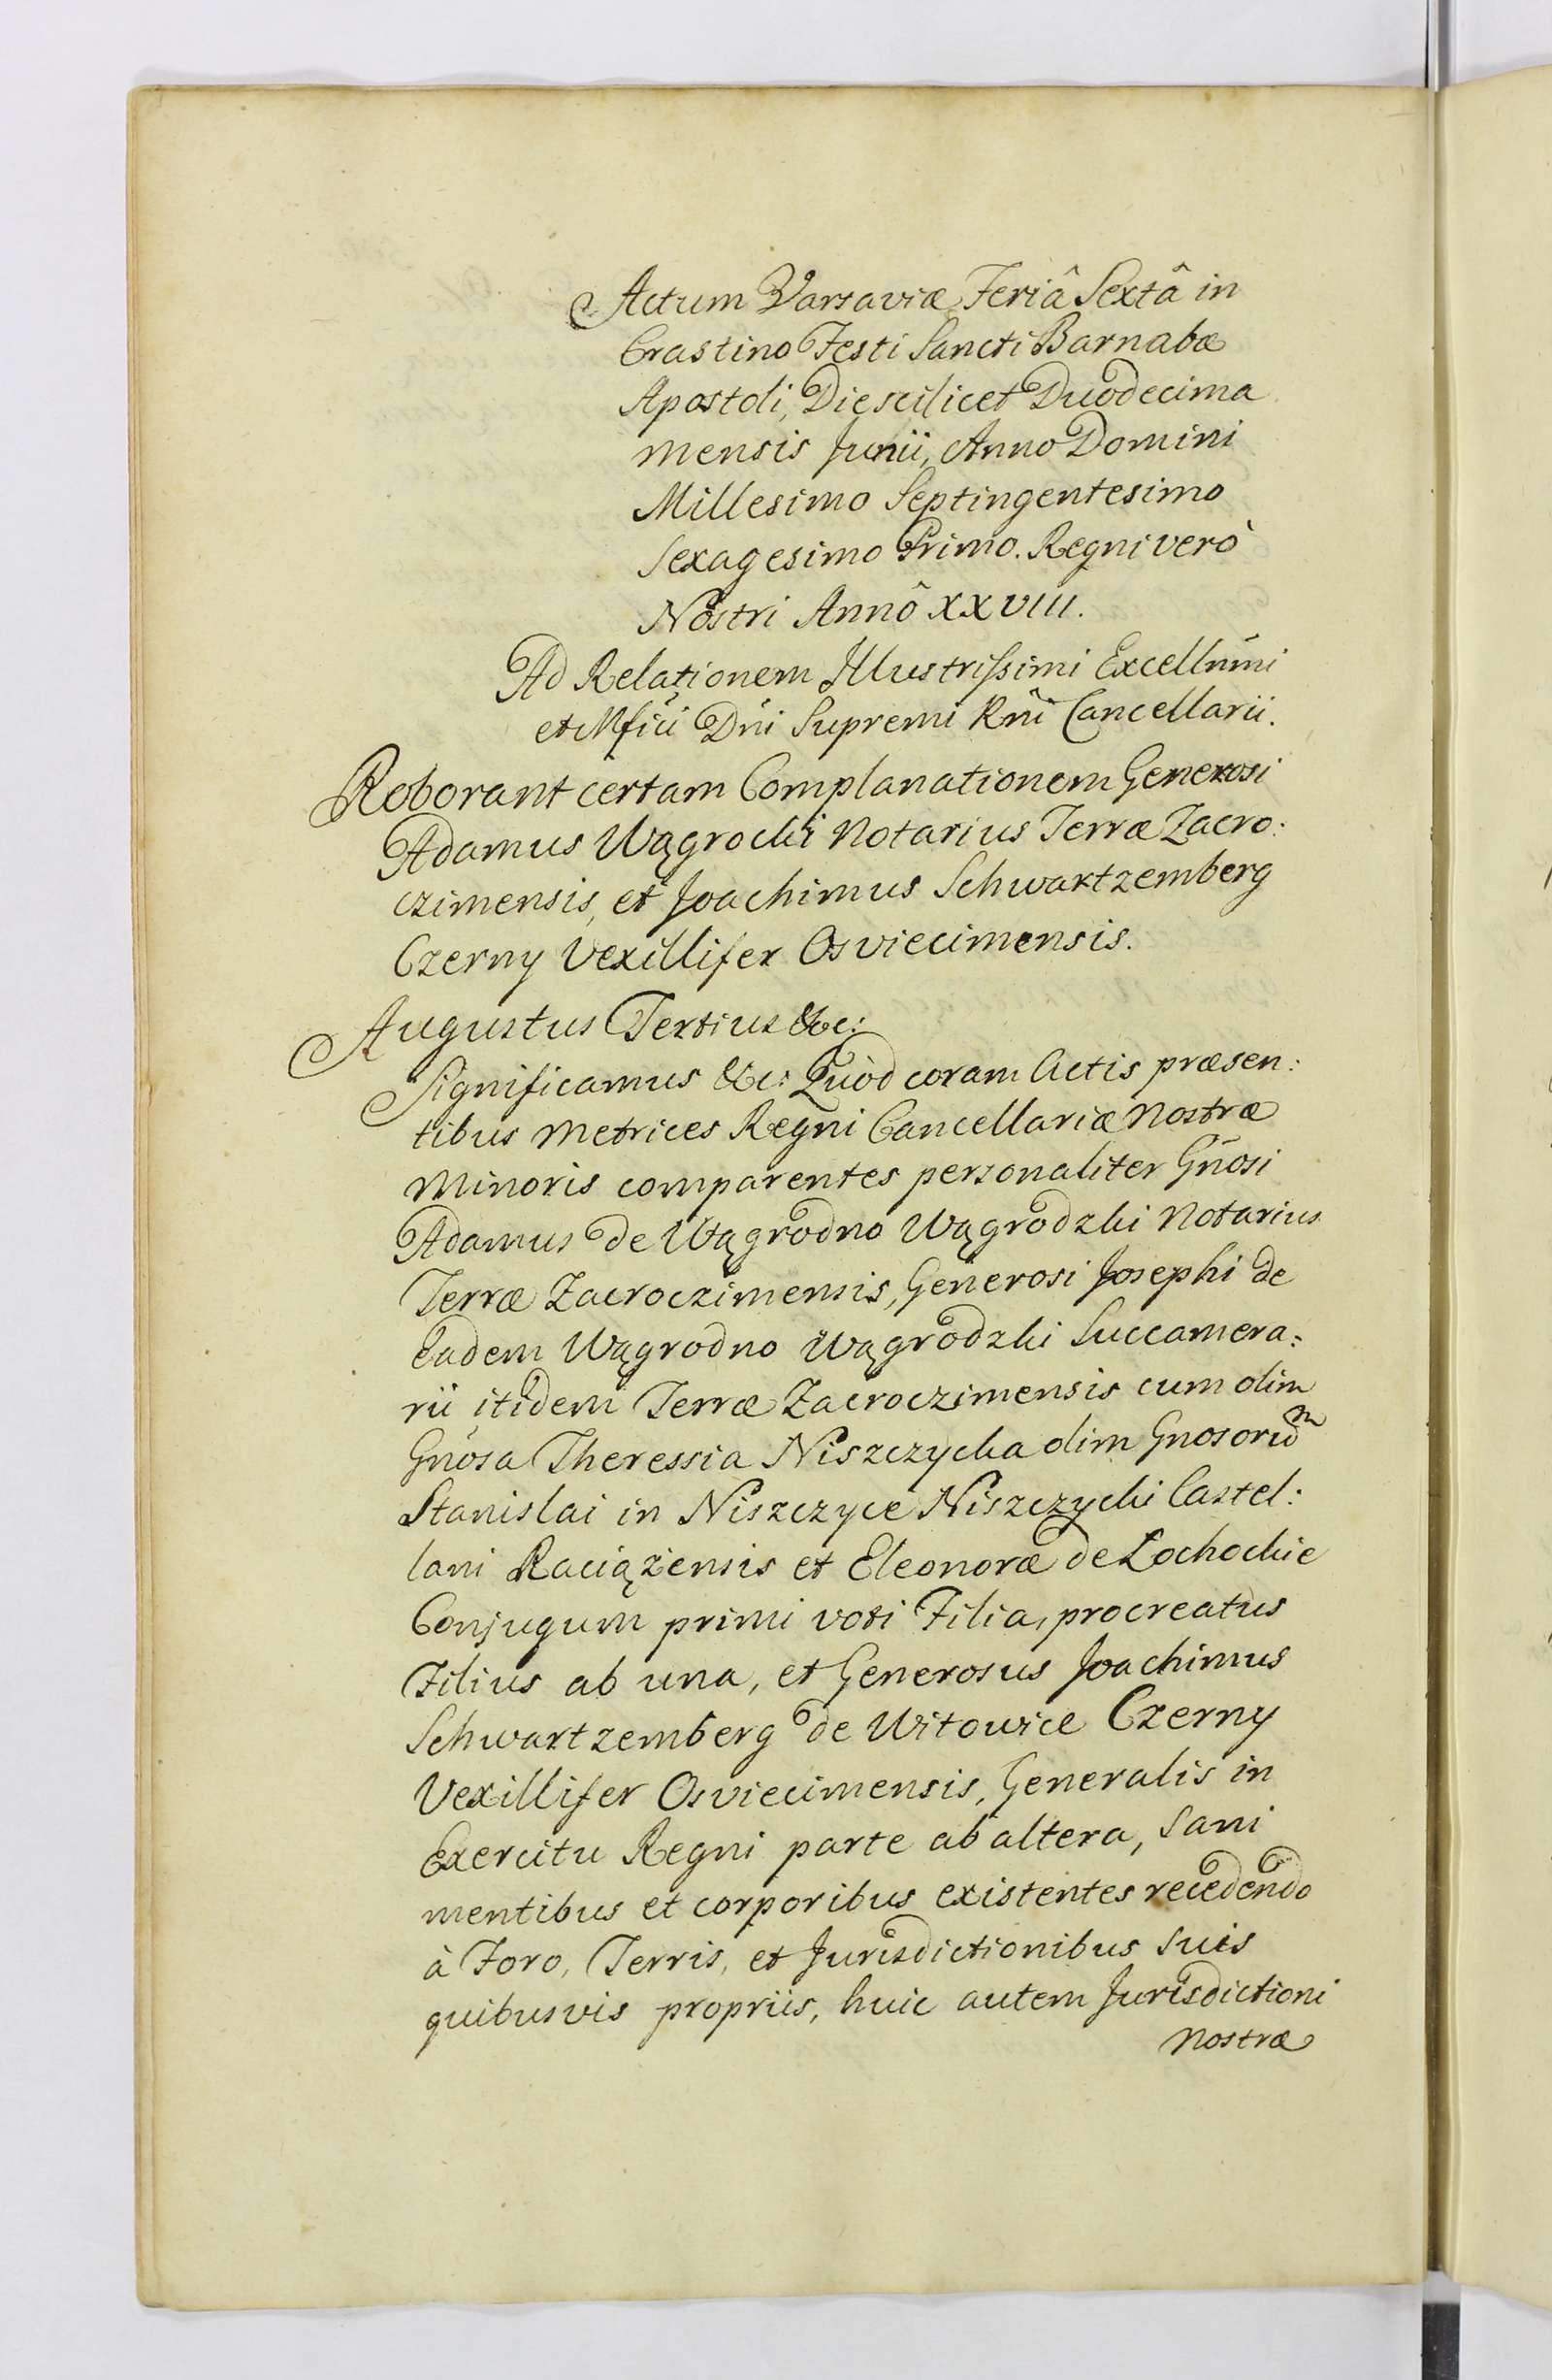 Actum Varsaviæ Feriâ Sextâ in
Crastino Festi Sancti Barnabæ
Apostoli, Die scilicet Duodecima
mensis Junii, Anno Domini
Millesimo Septingentesimo
Sexagesimo Primo. Regni verò
Nostri Annô XXVIII.
Ad Relationem Illustrissimi Excellñmi
et Mfici Dñi Supremi Rñi Cancellarii.
Roborant certam Complanationem Generosi
Adamus Wągrocki Notarius Terræ Zacro:
czimensis, et Joachimus Schwartzemberg
Czerny Vexillifer Osviecimensis.
Augustus Tertius &c:
Significamus &c: Quòd coram Actis præsen:
tibus Metrices Regni Cancellariæ Nostræ
Minoris comparentes personaliter Gñosi
Adamus de Wągrodno Wągrodzki Notarius
Terræ Zacroczimensis, Generosi Josephi de
eadem Wągrodno Wągrodzki Succamera:
rii itidem Terræ Zacroczimensis cum olim
Gñosa Theressia Niszczycka olim Gnosorum
Stanislai in Niszczyce Niszczycki Castel:
lani Raciążensis et Eleonoræ de Łochockie
Conjugum primi voti Filia, procreatus
Filius ab una, et Generosus Joachimus
Schwartzemberg de Witowice Czerny
Vexillifer Osviecimensis, Generalis in
Exercitu Regni parte ab altera, Sani
mentibus et corporibus existentes recedendo
à Foro, Terris, et Jurisdictionibus Suis
quibusvis propriis, huic autem Jurisdictioni
Nostræ